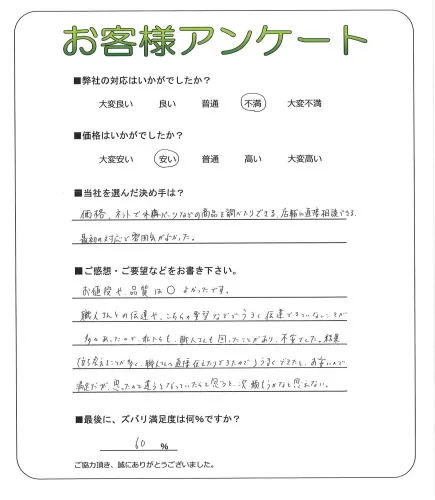 お客様アンケート
■弊社の対応はいかがでしたか？
大変良い 良い 普通 不満 大変不満
■価格はいかがでしたか？
大変安い 安い 普通 高い 大変高い
■当社を選んだ決め手は？
価格、ネットで外構パーツなどの商品を調べたりできる、店舗に直接相談できる
最初の対応で雰囲気がよかった。
■ご感想・ご要望などをお書き下さい。
お値段や、品質は〇 よかったです。
職人さんとの伝達や、こちらの要望などでうまく伝達できていないことが
多々あったので、私たちも、職人さんも困ったことがあり、不安でした。結果
考えることが多く、職人さんに直接伝えたりできたのでうまくできたし、お安いので
満足だが、思ったのと違うとなっていたらと思うと、次頼もうかなと思えない。
■最後に、ズバリ満足度は何％ですか？
60 ％
ご協力頂き、誠にありがとうございました。